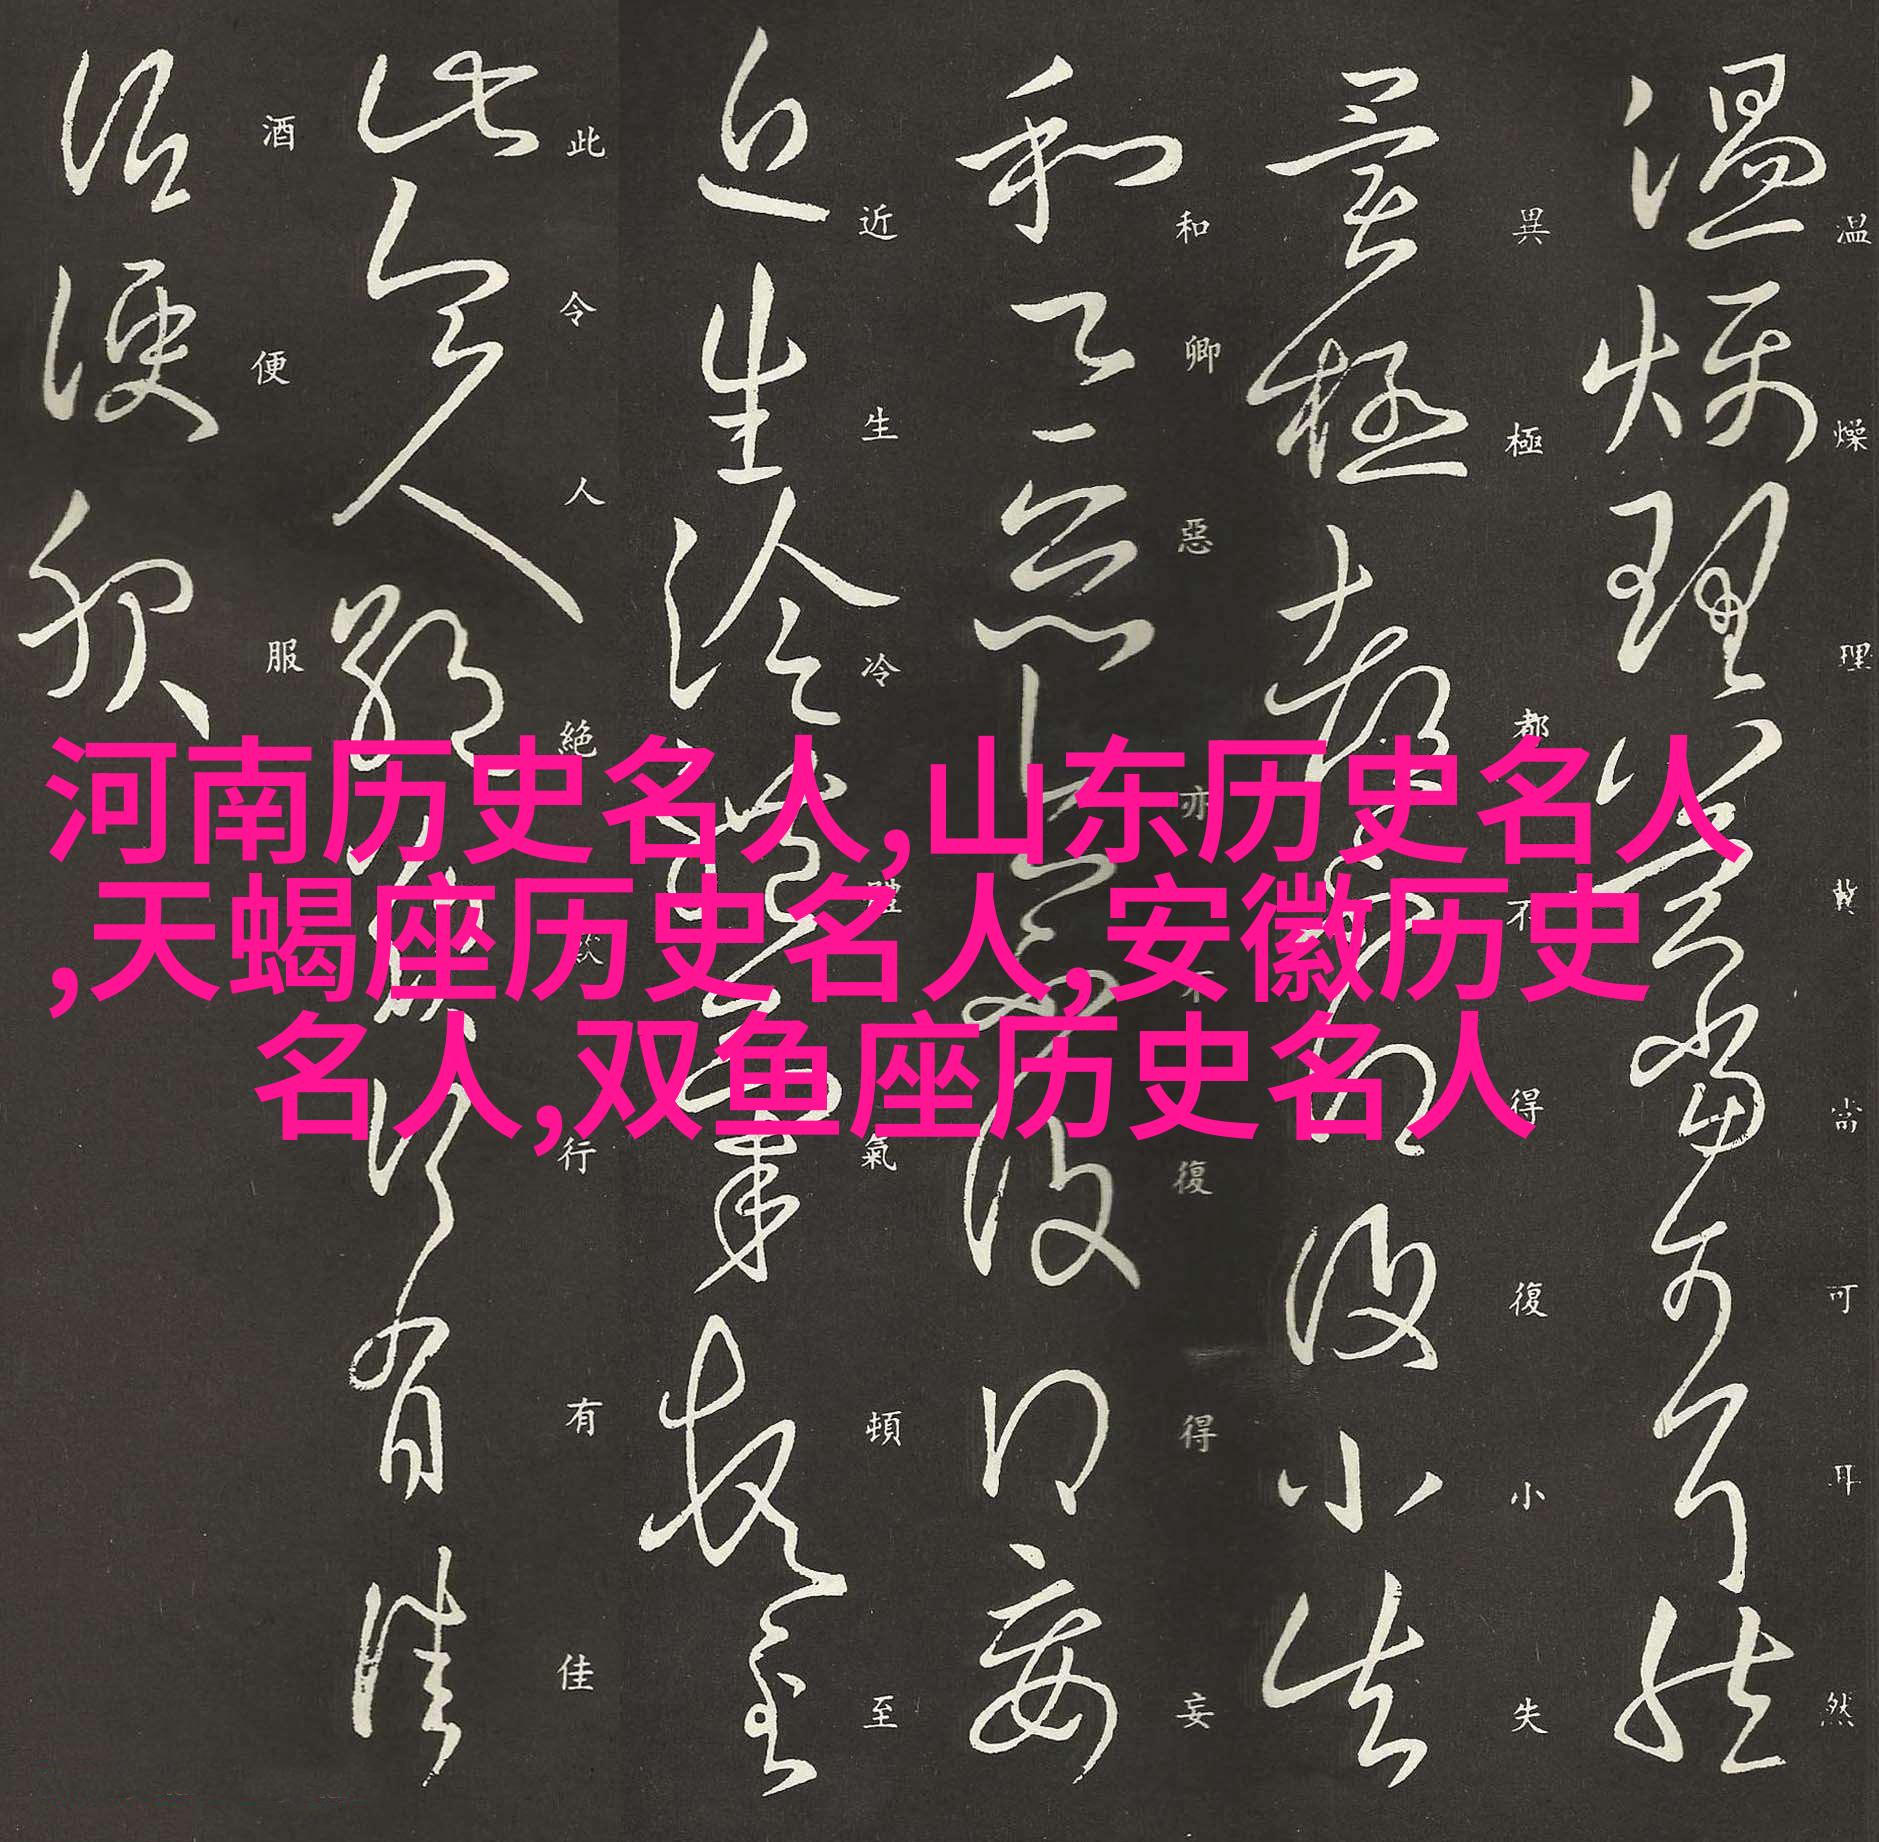 河南历史名人,山东历史名人
,天蝎座历史名人,安徽历史
名人,双鱼座历史名人
温燥理冀當可耳然
異極都不得復小失
和卿惡亦不復得妄
近生冷體氣頓至
此令人絶欲行有佳
酒便服